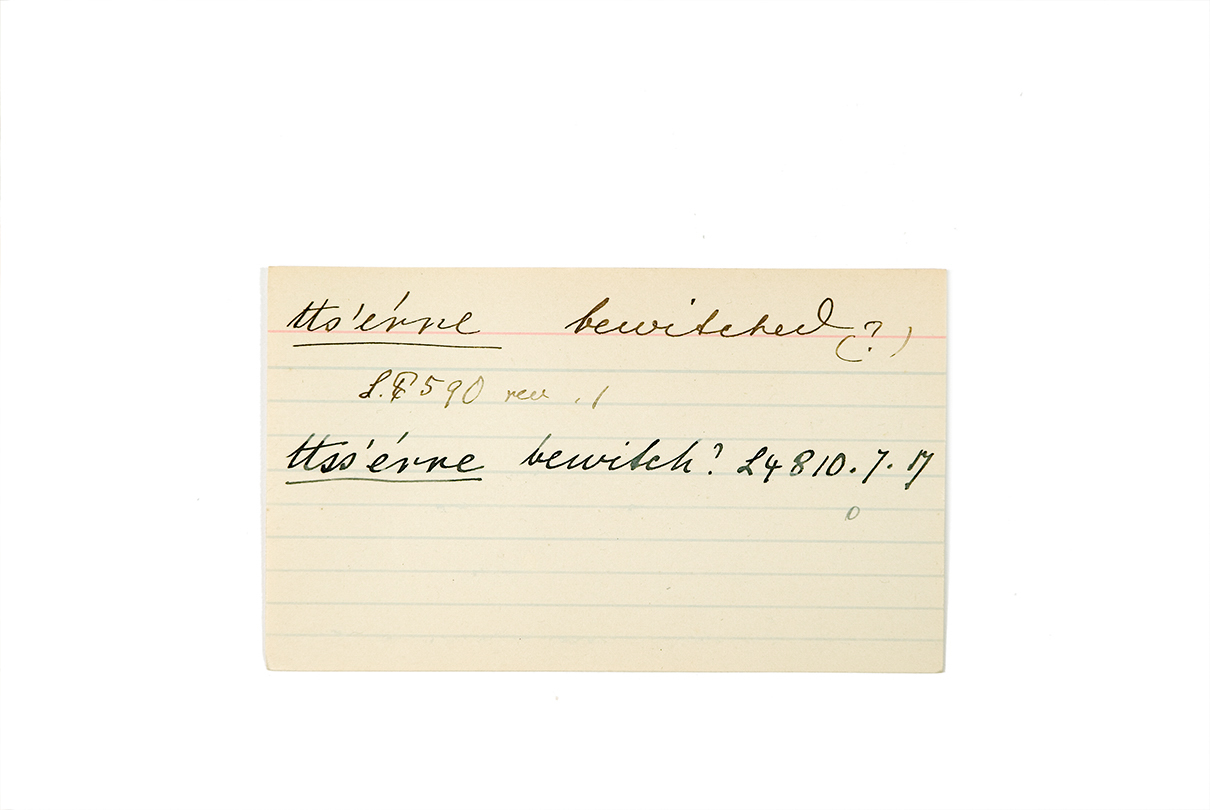 tts'érre bewitched (?)
L. 590 rev. 1
ttss'érre bewitch? L4 810.7.17